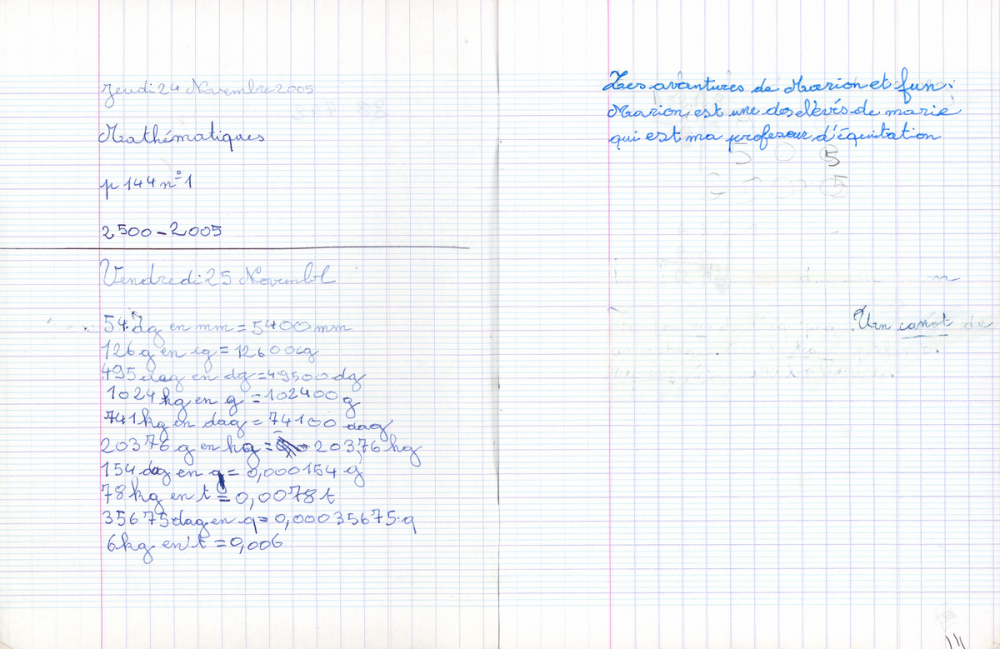 Jeudi 24 Novembre 2005
Mathématiques
p 144 n°1
2500 - 2005
Vendredi 25 Novembre
54dg en mm = 5400 mm
126g en cg = 12600cg
495 dag en dg = 49500 dg
1024hg en g = 102400 g
741kg en dag = 74100 dag
20376 g en hg = 203,76 hg
154 dag en q = 0,000154 q
78kg en t = 0,0078t
35675dag en q = 0,00035675 q
6kg en t = 0,006
Les avantures de Marion et fun.
Marion, est une des élèvés de marie
qui est ma profeseur d'équitation
5
5
Un canot de